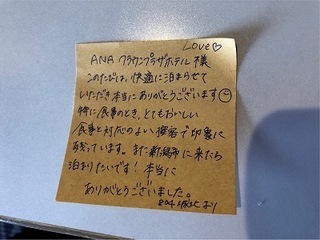 Love♡
ANA クラウンプラザホテル 様
このたびは、快適に泊まらせて
いただき本当にありがとうございます☺
特に食事のとき、とてもおいしい
食事と対応のよい接客で印象に
残っています。また新潟市に来たら
泊まりたいです！本当に
ありがとうございました。
804 より